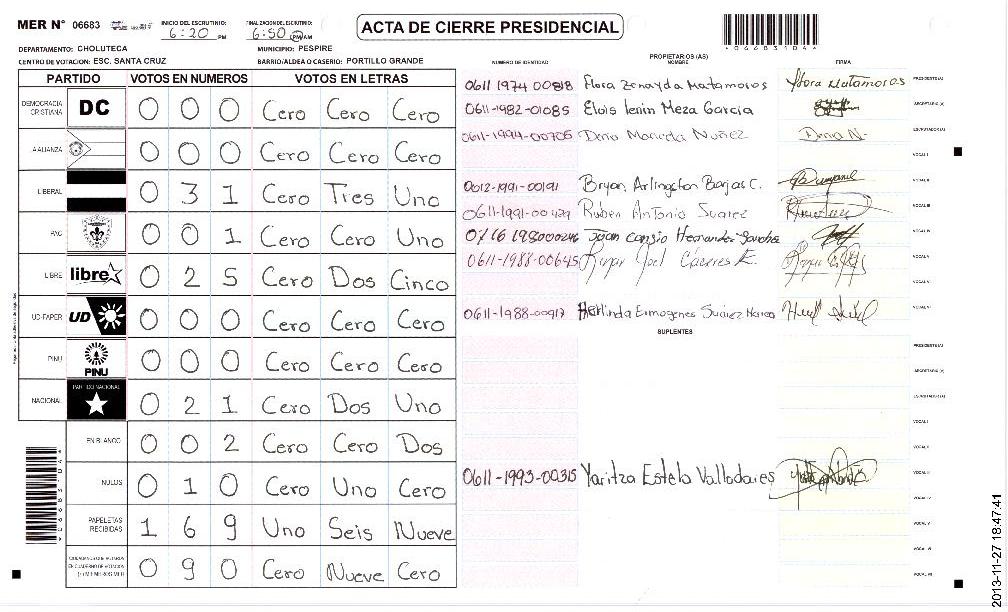 MER N° 06683 INICIO DEL ESCRUTINIO: 6:20 PM FINALIZACION DEL ESCRUTINIO: 6:50 PM AM
ACTA DE CIERRE PRESIDENCIAL
0668310 44
DEPARTAMENTO: CHOLUTECA MUNICIPIO: PESPIRE
CENTRO DE VOTACION: ESC. SANTA CRUZ BARRIO/ALDEA O CASERIO: PORTILLO GRANDE
PARTIDO VOTOS EN NUMEROS VOTOS EN LETRAS
DEMOCRACIA CRISTIANA DC 0 0 0 Cero Cero Cero
LA ALIANZA 0 0 0 Cero Cero Cero
LIBERAL 0 3 1 Cero Tres Uno
PAC 0 0 1 Cero Cero Uno
LIBRE libre 0 2 5 Cero Dos Cinco
UD-FAPER UD 0 0 0 Cero Cero Cero
PINU PINU 0 0 0 Cero Cero Cero
NACIONAL PARTIDO NACIONAL 0 2 1 Cero Dos Uno
EN BLANCO 0 0 2 Cero Cero Dos
NULOS 0 1 0 Cero Uno Cero
PAPELETAS RECIBIDAS 1 6 9 Uno Seis Nueve
CIUDADANOS QUE VOTARON EN CUADERNO DE VOTACION (+) MIEMROS MER 0 9 0 Cero Nueve Cero
PROPIETARIOS (AS)
NUMERO DE IDENTIDAD NOMBRE FIRMA
0611 1974 00818 Flora Zenayda Matamoros Flora Matamoros PRESIDENTE(A)
0611-1982-01085 Elois Lenin Meza Garcia SECRETARIO (A)
0611-1994-00705 Dena Marida Nuñez Dena N. ESCRUTADOR (A)
VOCAL I
0612-1991-00191 Bryan Arlington Borjas C. VOCAL II
0611-1991-00429 Ruben Antonio Suarez VOCAL III
0716 198000246 Hernandez Sanchez VOCAL IV
0611-1988-00645 Joel Cáceres E. VOCAL V
0611-1988-00917 Herlinda Ermogenes Suarez
SUPLENTES
PRESIDENTE(A)
SECRETARIO (A)
ESCRUTADOR (A)
VOCAL I
VOCAL II
0611-1993-00315 Yaritza Estela Valladares VOCAL III
VOCAL IV
VOCAL V
VOCAL VI
VOCAL VII
2013-11-27 18:47:41